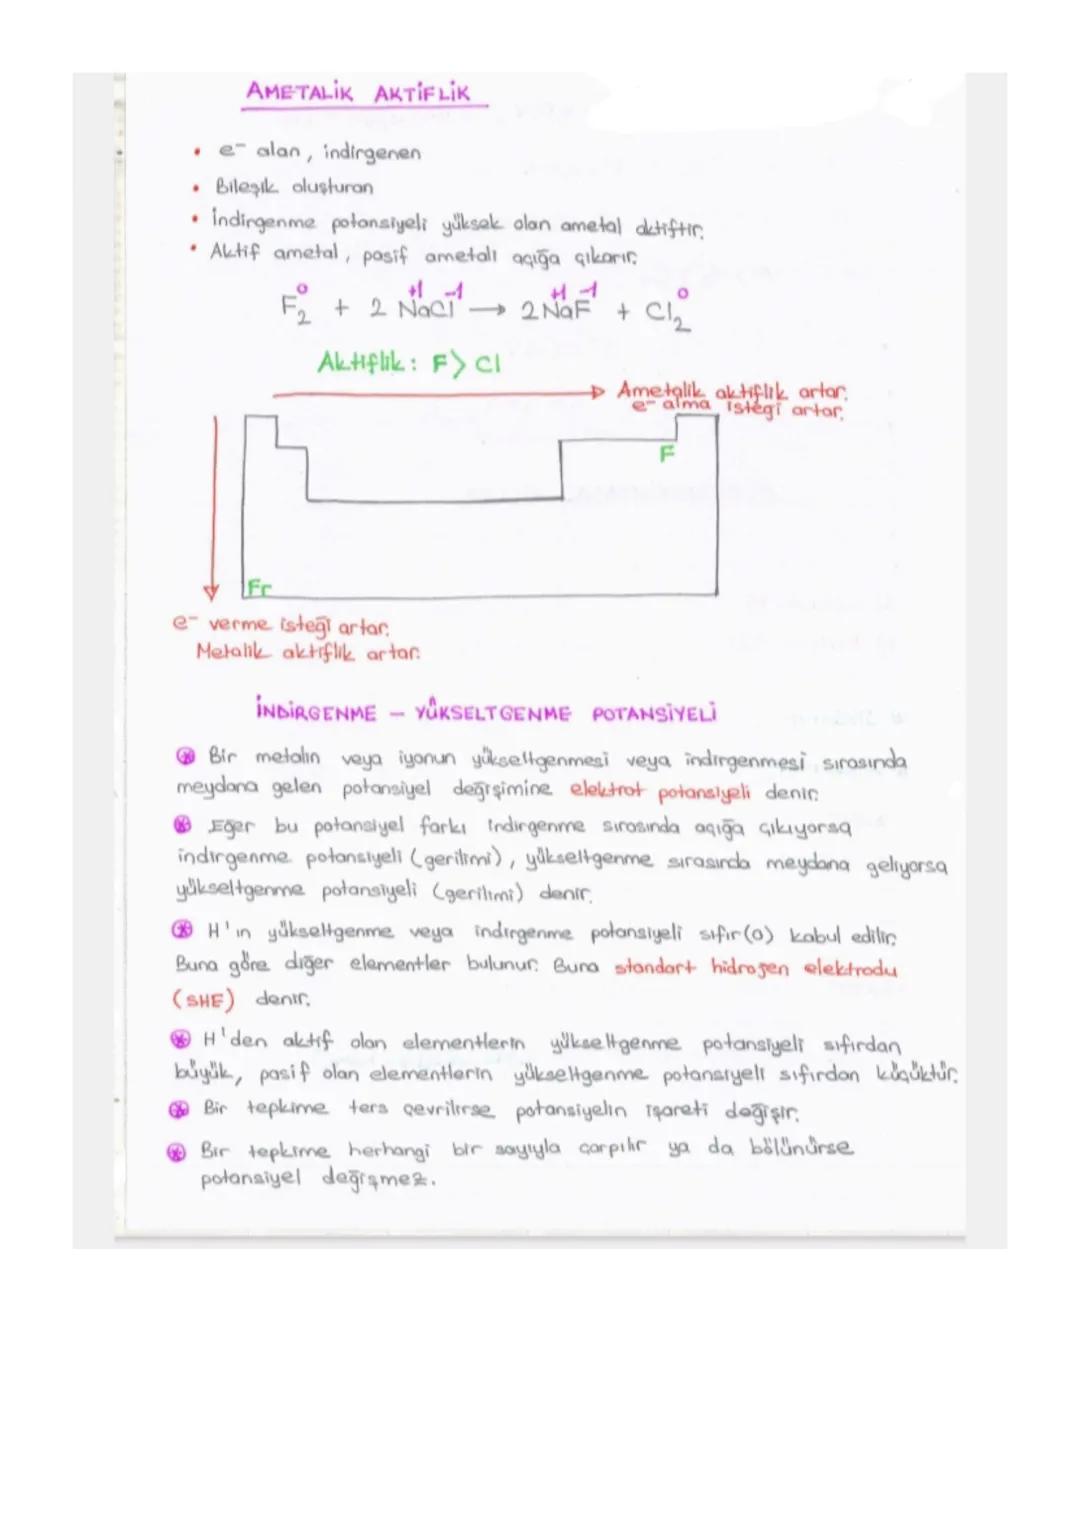 AMETALİK AKTİFLİK
• e⁻ alan, indirgenen
• Bileşik oluşturan
• İndirgenme potansiyeli yüksek olan ametal aktiftir.
• Aktif ametal, pasif ametali açığa çıkarır.
0 +1 -1 +1 -1 0
F₂ + 2 NaCl → 2 NaF + Cl₂
Aktiflik: F > Cl
Ametalik aktiflik artar.
e⁻ alma isteği artar.
F
Fr
e⁻ verme isteği artar.
Metalik aktiflik artar.
İNDİRGENME – YÜKSELTGENME POTANSİYELİ
Bir metalin veya iyonun yükseltgenmesi veya indirgenmesi sırasında
meydana gelen potansiyel değişimine elektrot potansiyeli denir.
Eğer bu potansiyel farkı indirgenme sırasında açığa çıkıyorsa
indirgenme potansiyeli (gerilimi), yükseltgenme sırasında meydana geliyorsa
yükseltgenme potansiyeli (gerilimi) denir.
H'ın yükseltgenme veya indirgenme potansiyeli sıfır (0) kabul edilir.
Buna göre diğer elementler bulunur. Buna standart hidrojen elektrodu
(SHE) denir.
H'den aktif olan elementlerin yükseltgenme potansiyeli sıfırdan
büyük, pasif olan elementlerin yükseltgenme potansiyeli sıfırdan küçüktür.
Bir tepkime ters çevrilirse potansiyelin işareti değişir.
Bir tepkime herhangi bir sayıyla çarpılır ya da bölünürse
potansiyel değişmez.